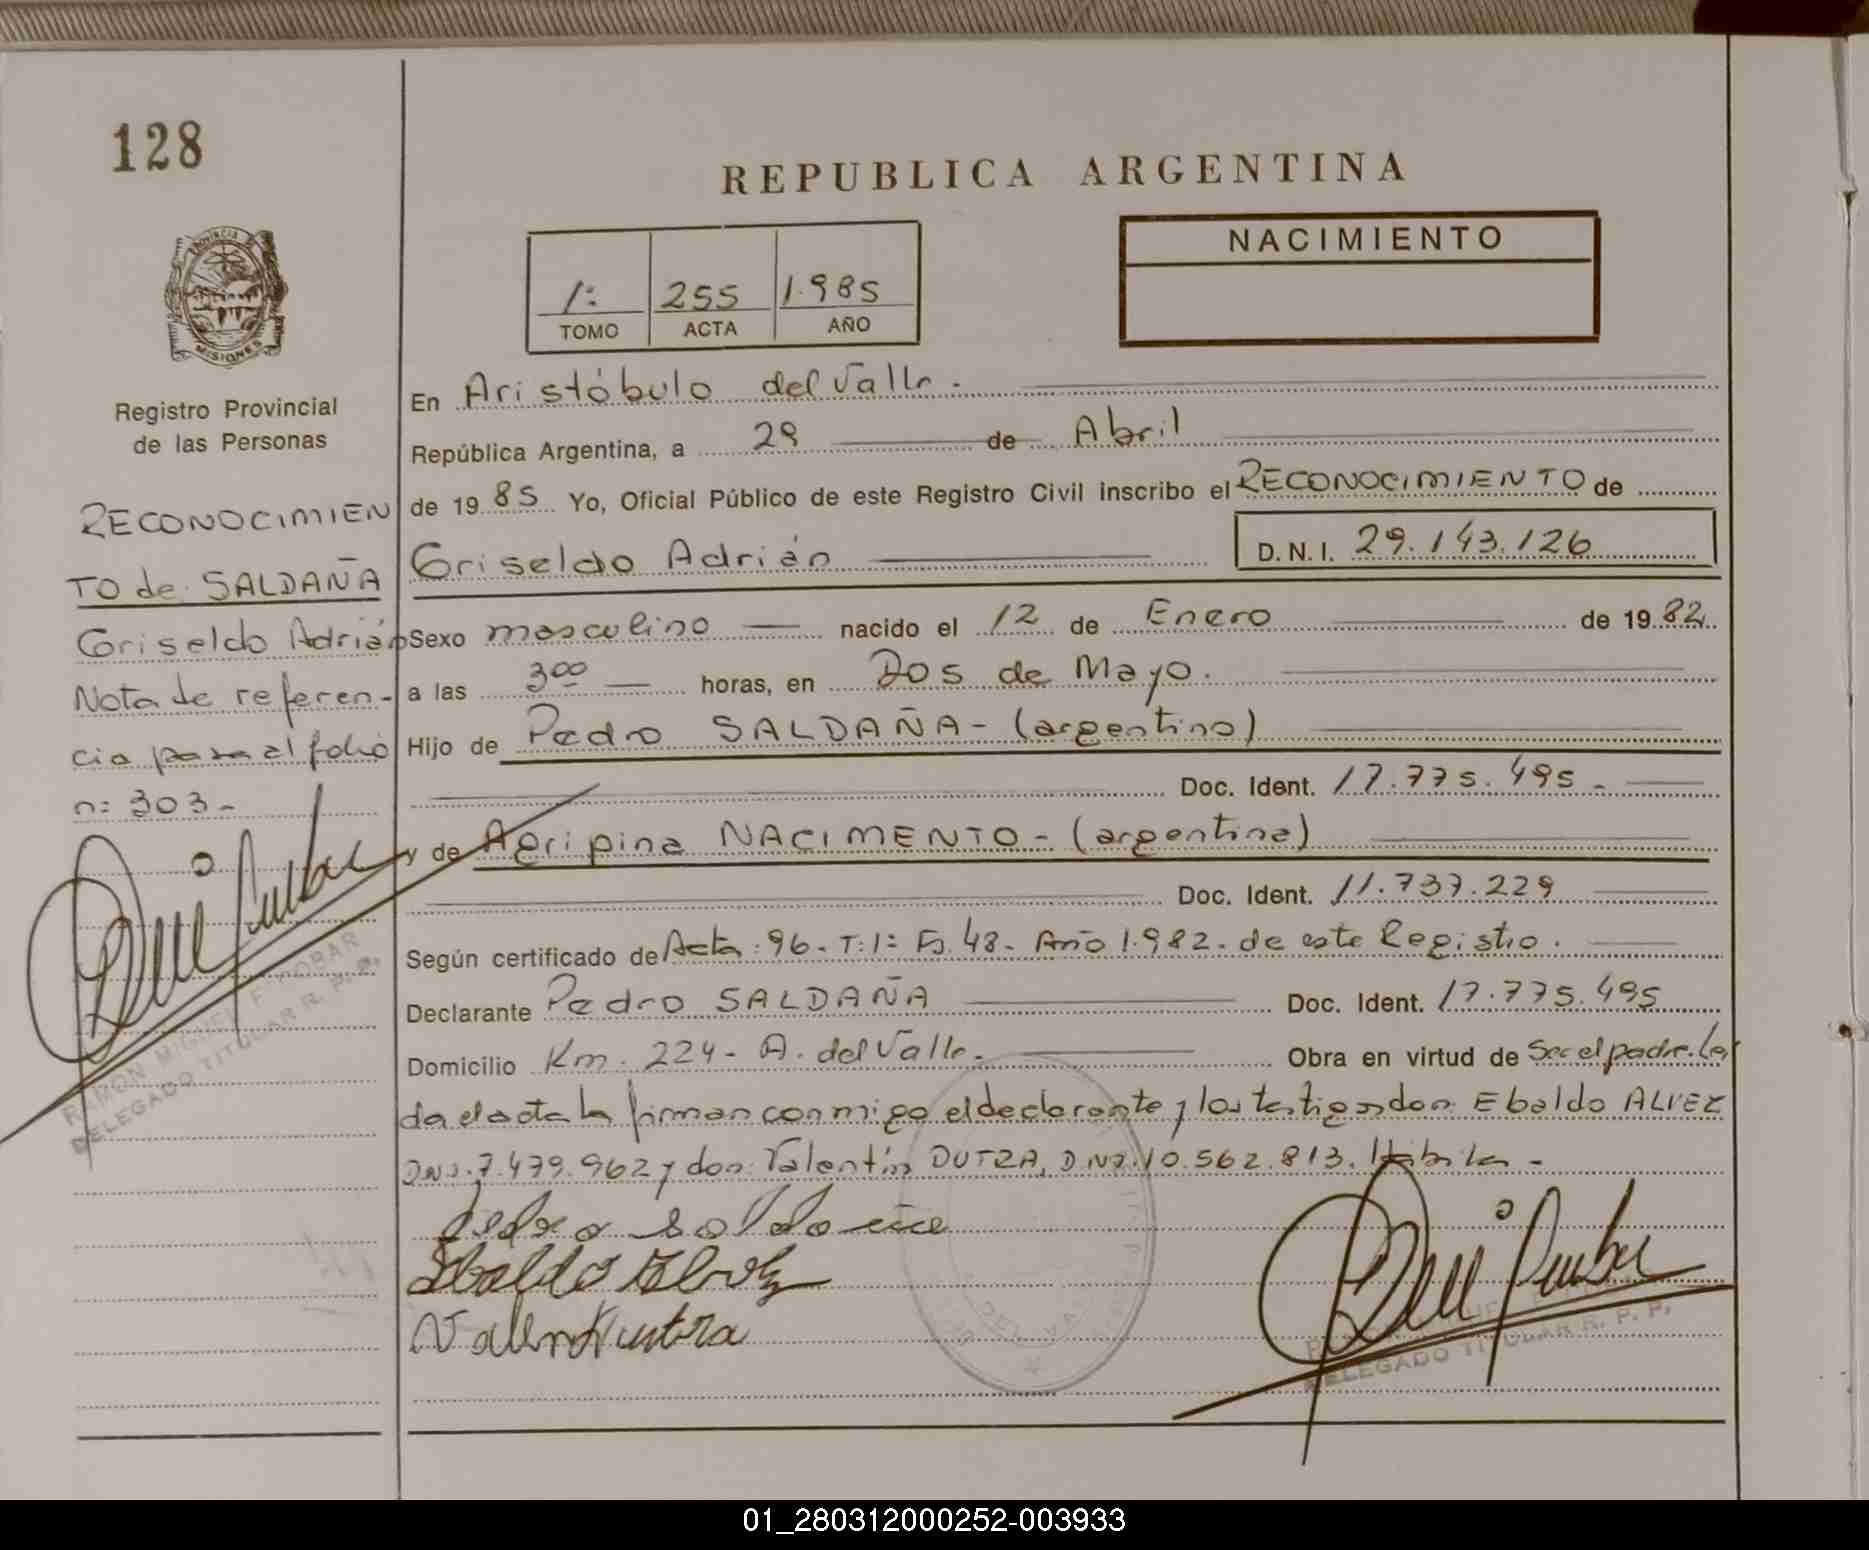 128
REPUBLICA ARGENTINA
NACIMIENTO
1: 255 1.985
TOMO ACTA AÑO
PROVINCIA DE
MISIONES
Registro Provincial
de las Personas
RECONOCIMIEN
TO de SALDAÑA
Griseldo Adrián
Nota de referen-
cia para al folio
n: 303-
RAMON MIGUEL F
DELEGADO TITULAR R. P. P.
En Aristóbulo del Valle.
República Argentina, a 29 de Abril
de 1985 Yo, Oficial Público de este Registro Civil inscribo el RECONOCIMIENTO de
Griseldo Adrián D.N.I. 29.143.126
Sexo masculino nacido el 12 de Enero de 1982
a las 300 horas, en Dos de Mayo.
Hijo de Pedro SALDAÑA - (argentino)
Doc. Ident. 17.775.495-
y de Agripina NACIMENTO - (argentina)
Doc. Ident. 11.737.229
Según certificado de Acta: 96- T: 1: F: 48- Año 1.982- de este Registro.
Declarante Pedro SALDAÑA Doc. Ident. 17.775.495
Domicilio Km. 224- A. del Valle. Obra en virtud de Ser el padre. Leí
da el acta la firman conmigo el declarante y los testigos don: Ebaldo ALVEZ
DNI. 7.479.962 y don: Valentín DUTRA, DNI. 10.562.813. Hábiles -
DELEGADO TITULAR R. P. P.
01_280312000252-003933